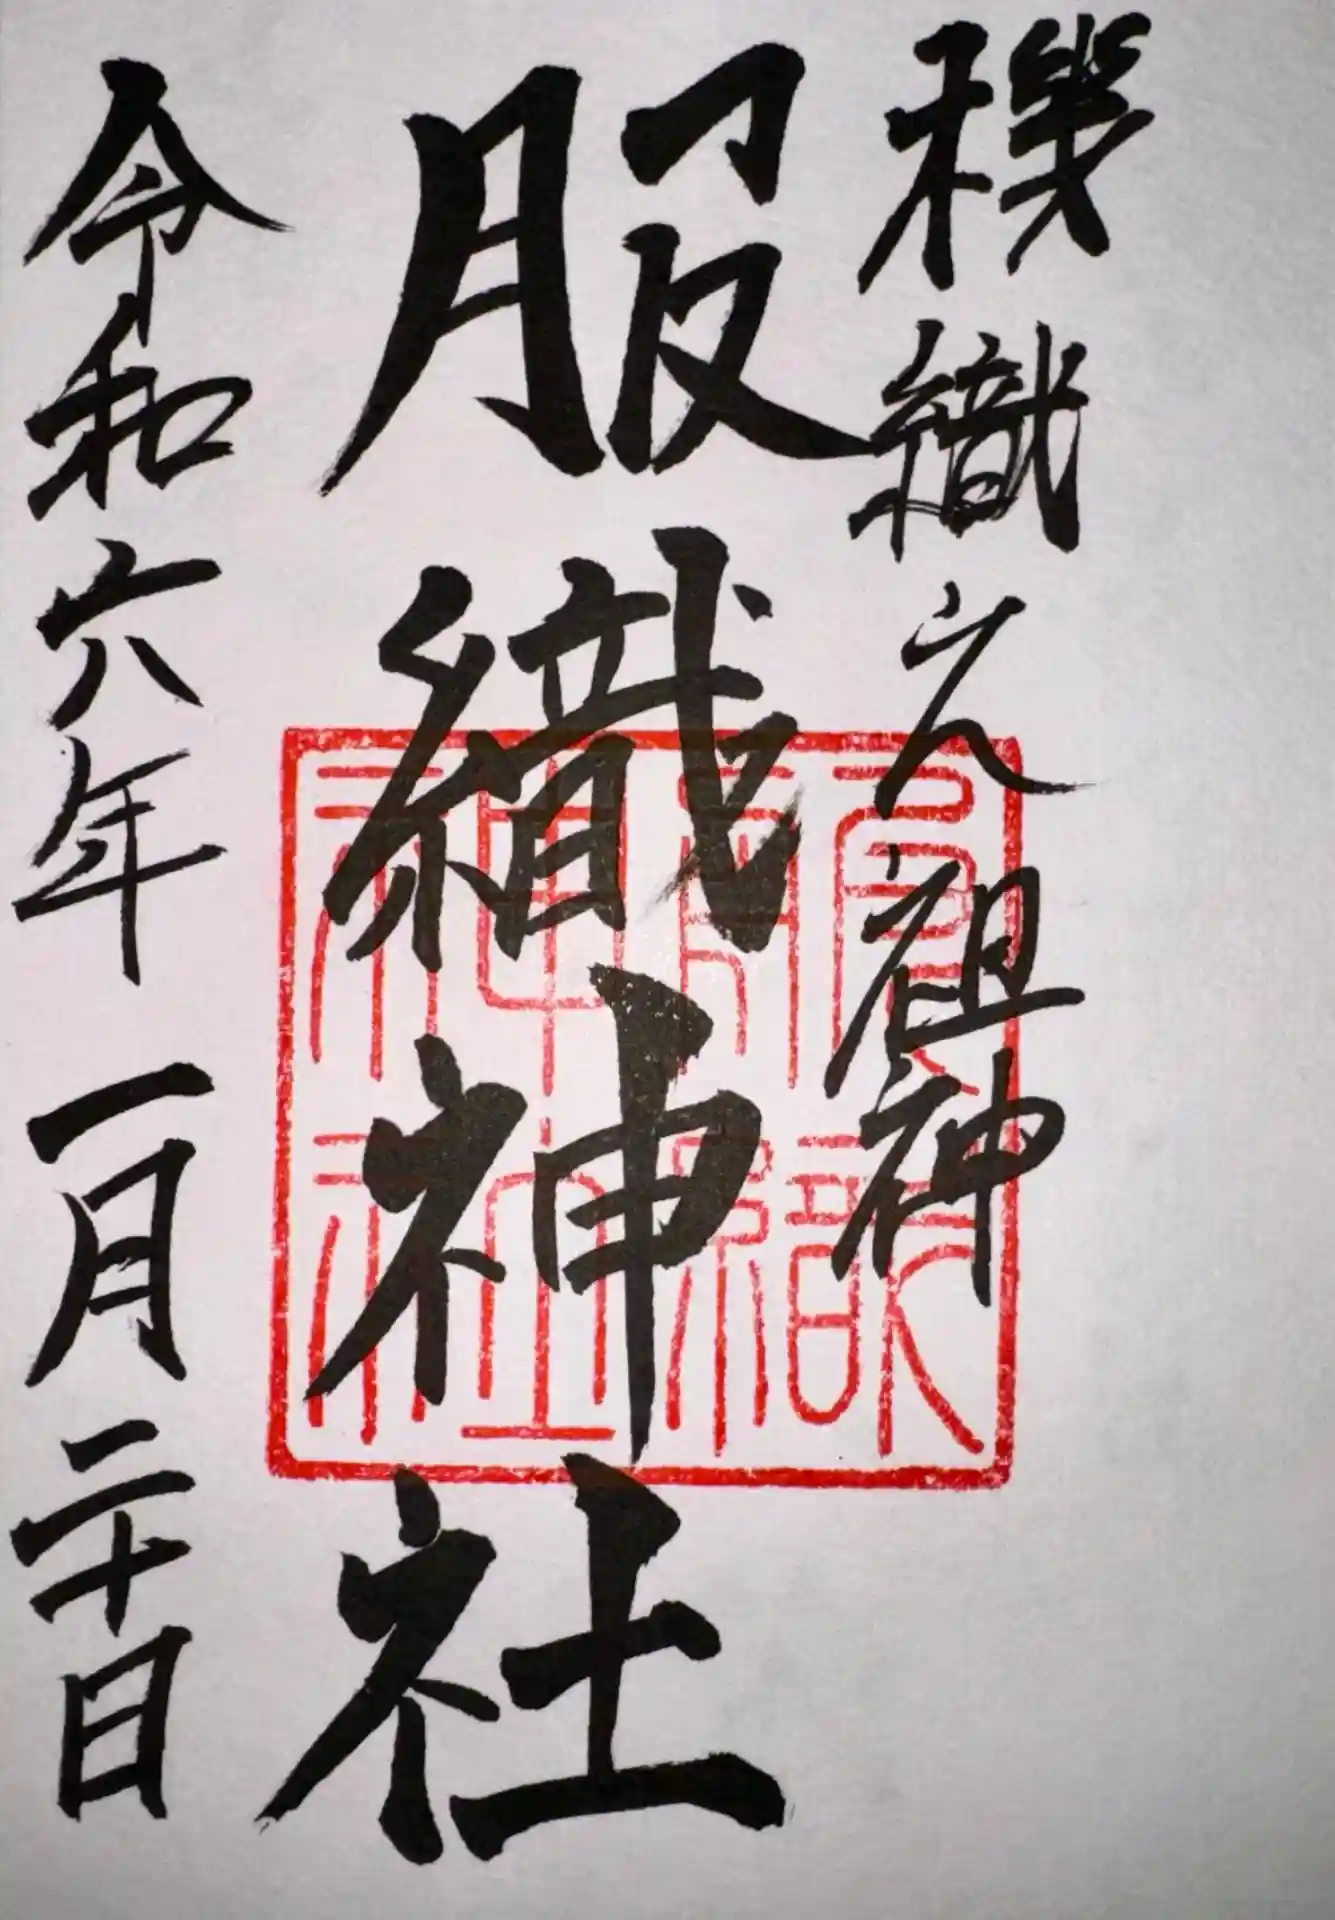 機織之祖神
服織神社
令和六年一月二十日
服織
神社